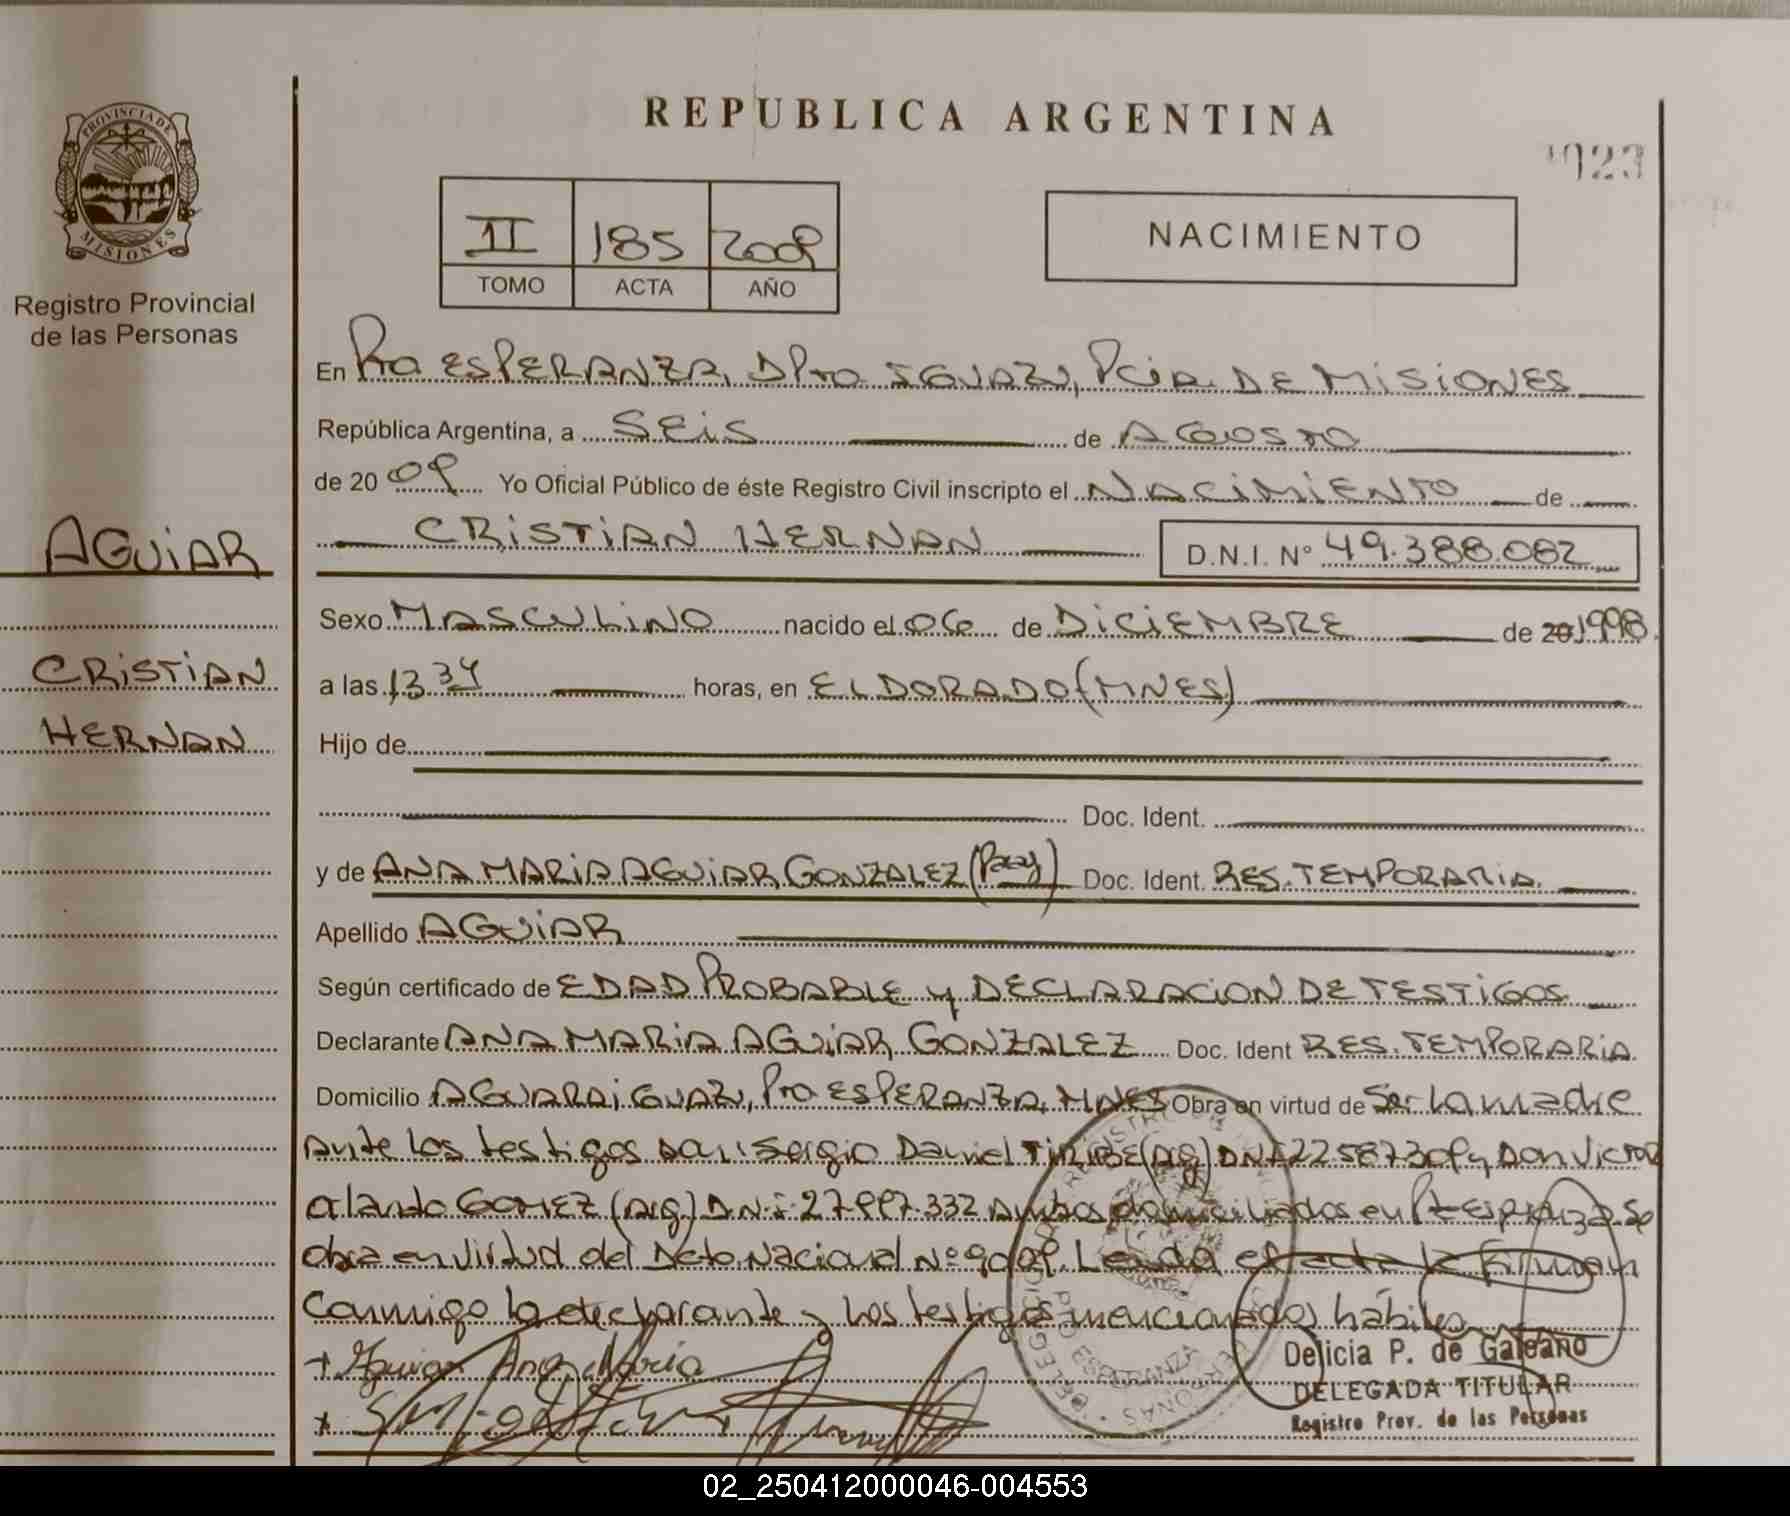 REPUBLICA ARGENTINA
023
PROVINCIA DE MISIONES
Registro Provincial
de las Personas
II 185 2009
TOMO ACTA AÑO
NACIMIENTO
En Pto ESPERANZA, DPTO IGUAZU, PCIA. DE MISIONES
República Argentina, a SEIS de AGOSTO
de 2009 Yo Oficial Público de éste Registro Civil inscripto el NACIMIENTO de
CRISTIAN HERNAN D.N.I. Nº 49.388.082
AGUIAR
CRISTIAN
HERNAN
Sexo MASCULINO nacido el 06 de DICIEMBRE de 20 1998.
a las 13 34 horas, en ELDORADO (MNES)
Hijo de
Doc. Ident.
y de ANA MARIA AGUIAR GONZALEZ (Paray) Doc. Ident. RES. TEMPORARIA.
Apellido AGUIAR
Según certificado de EDAD PROBABLE y DECLARACION DE TESTIGOS
Declarante ANA MARIA AGUIAR GONZALEZ Doc. Ident RES. TEMPORARIA
Domicilio AGUARAI GUAZU, Pto ESPERANZA, MNES Obra en virtud de Ser la madre
Ante los testigos Don: Sergio Daniel (Arg) DNI 22587309 y Don Victor
Orlando GOMEZ (Arg.) D.N.I: 27.997.332 Ambos domiciliados en Pto Esperanza. Se
obra en virtud del Dcto. Nacional Nº 90/09. Leida el acta la firman
conmigo la declarante y los testigos mencionados hábiles
+ Aguiar Ana Maria
Delicia P. de Galeano
DELEGADA TITULAR
Registro Prov. de las Personas
02_250412000046-004553